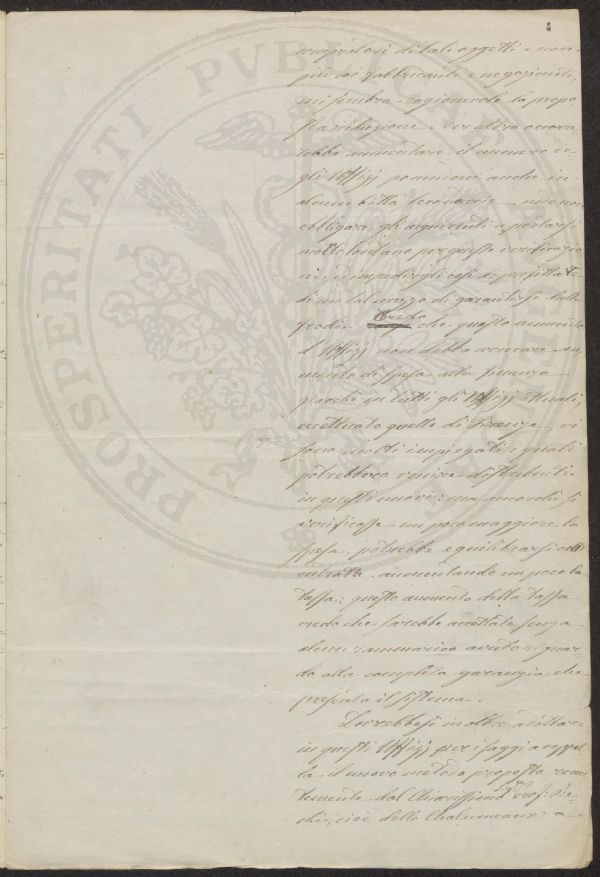 PROSPERITATI PUBLICAE
di tali oggetti e non
più i fabbricanti e negozianti,
mi sembra ragionevole la propo
sta istituzione. Per altro occor
rebbe aumentare il numero de
gli Uffizj ponendone anche in
alcune Città secondarie
obbligare gli acquirenti a portarsi
molto lontano per queste verificazio
ni, impedirgli così di profittare
di un tal mezzo di garantirsi dalle
frodi. Credo che questo aumento
d'Uffizj non debba arrecare au
mento di spesa alla Finanza
giacchè in tutti gli Uffizj attuali,
eccettuato quello di Firenze, vi
sono molti impiegati i quali
potrebbero venire distribuiti
in questi nuovi: ma ancorchè si
verificasse un poco maggiore la
spesa, potrebbe equilibrarsi coll'
entrata aumentando un poco la
tassa: questo aumento della tassa
credo che sarebbe accettato senza
alcun rammarico avuto riguar
do alla completa garanzia che
presenta il sistema.
Dovrebbesi inoltre adottare
in questi Uffizj per i saggi a coppel
la il nuovo metodo proposto recen
temente dal Chiarissimo Sig.re Prof. Be
chi, cioè dello Chalumeaux a